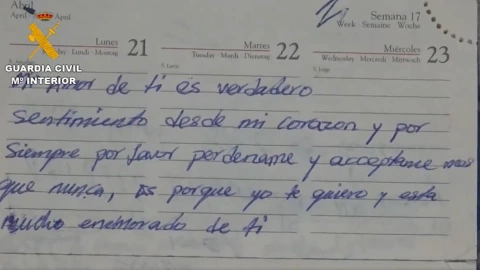 Abril
April
April
Semana 17
Week · Semaine · Woche
Lunes
21
Martes
22
Miércoles
23
Lundi · Montag
Tuesday · Mardi · Dienstag
Wednesday · Mercredi · Mittwoch
GUARDIA CIVIL
Mº INTERIOR
Mi Amor de ti es verdadero
sentimiento desde mi corazon y por
siempre por favor perdename y acceptame mas
que nunca, es porque yo te quiero y esta
mucho enemorado de ti